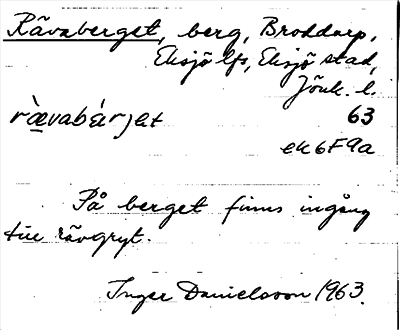 Rävaberget, berg, Broddarp,
Eksjö lfs, Eksjö stad,
Jönk. l.
ræ̀vabærjet 63
ek6F9a
På berget finns ingång
till rävgryt.
Inger Danielsson 1963.